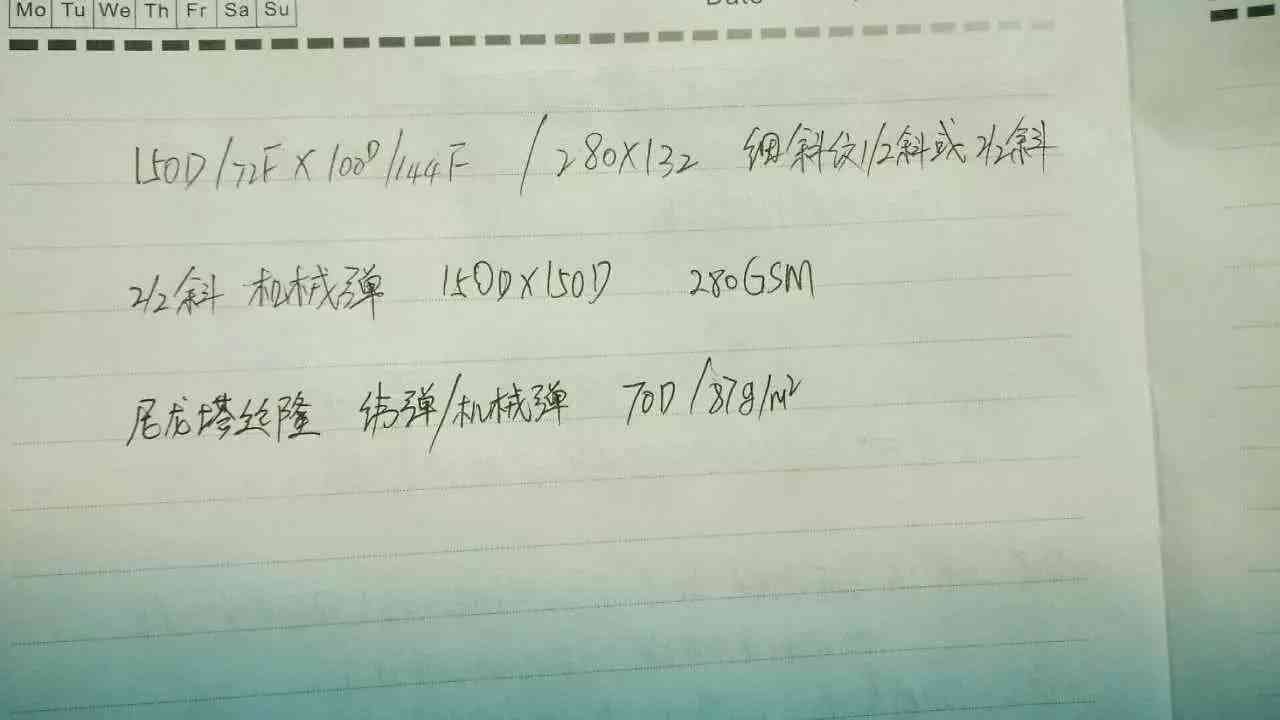 Mo Tu We Th Fr Sa Su
150D/72F×100D/144F /280×132 细斜纹1/2斜或2/2斜
2/2斜 机械弹 150D×150D 280GSM
尼龙塔丝隆 纬弹/机械弹 70D/87g/m²